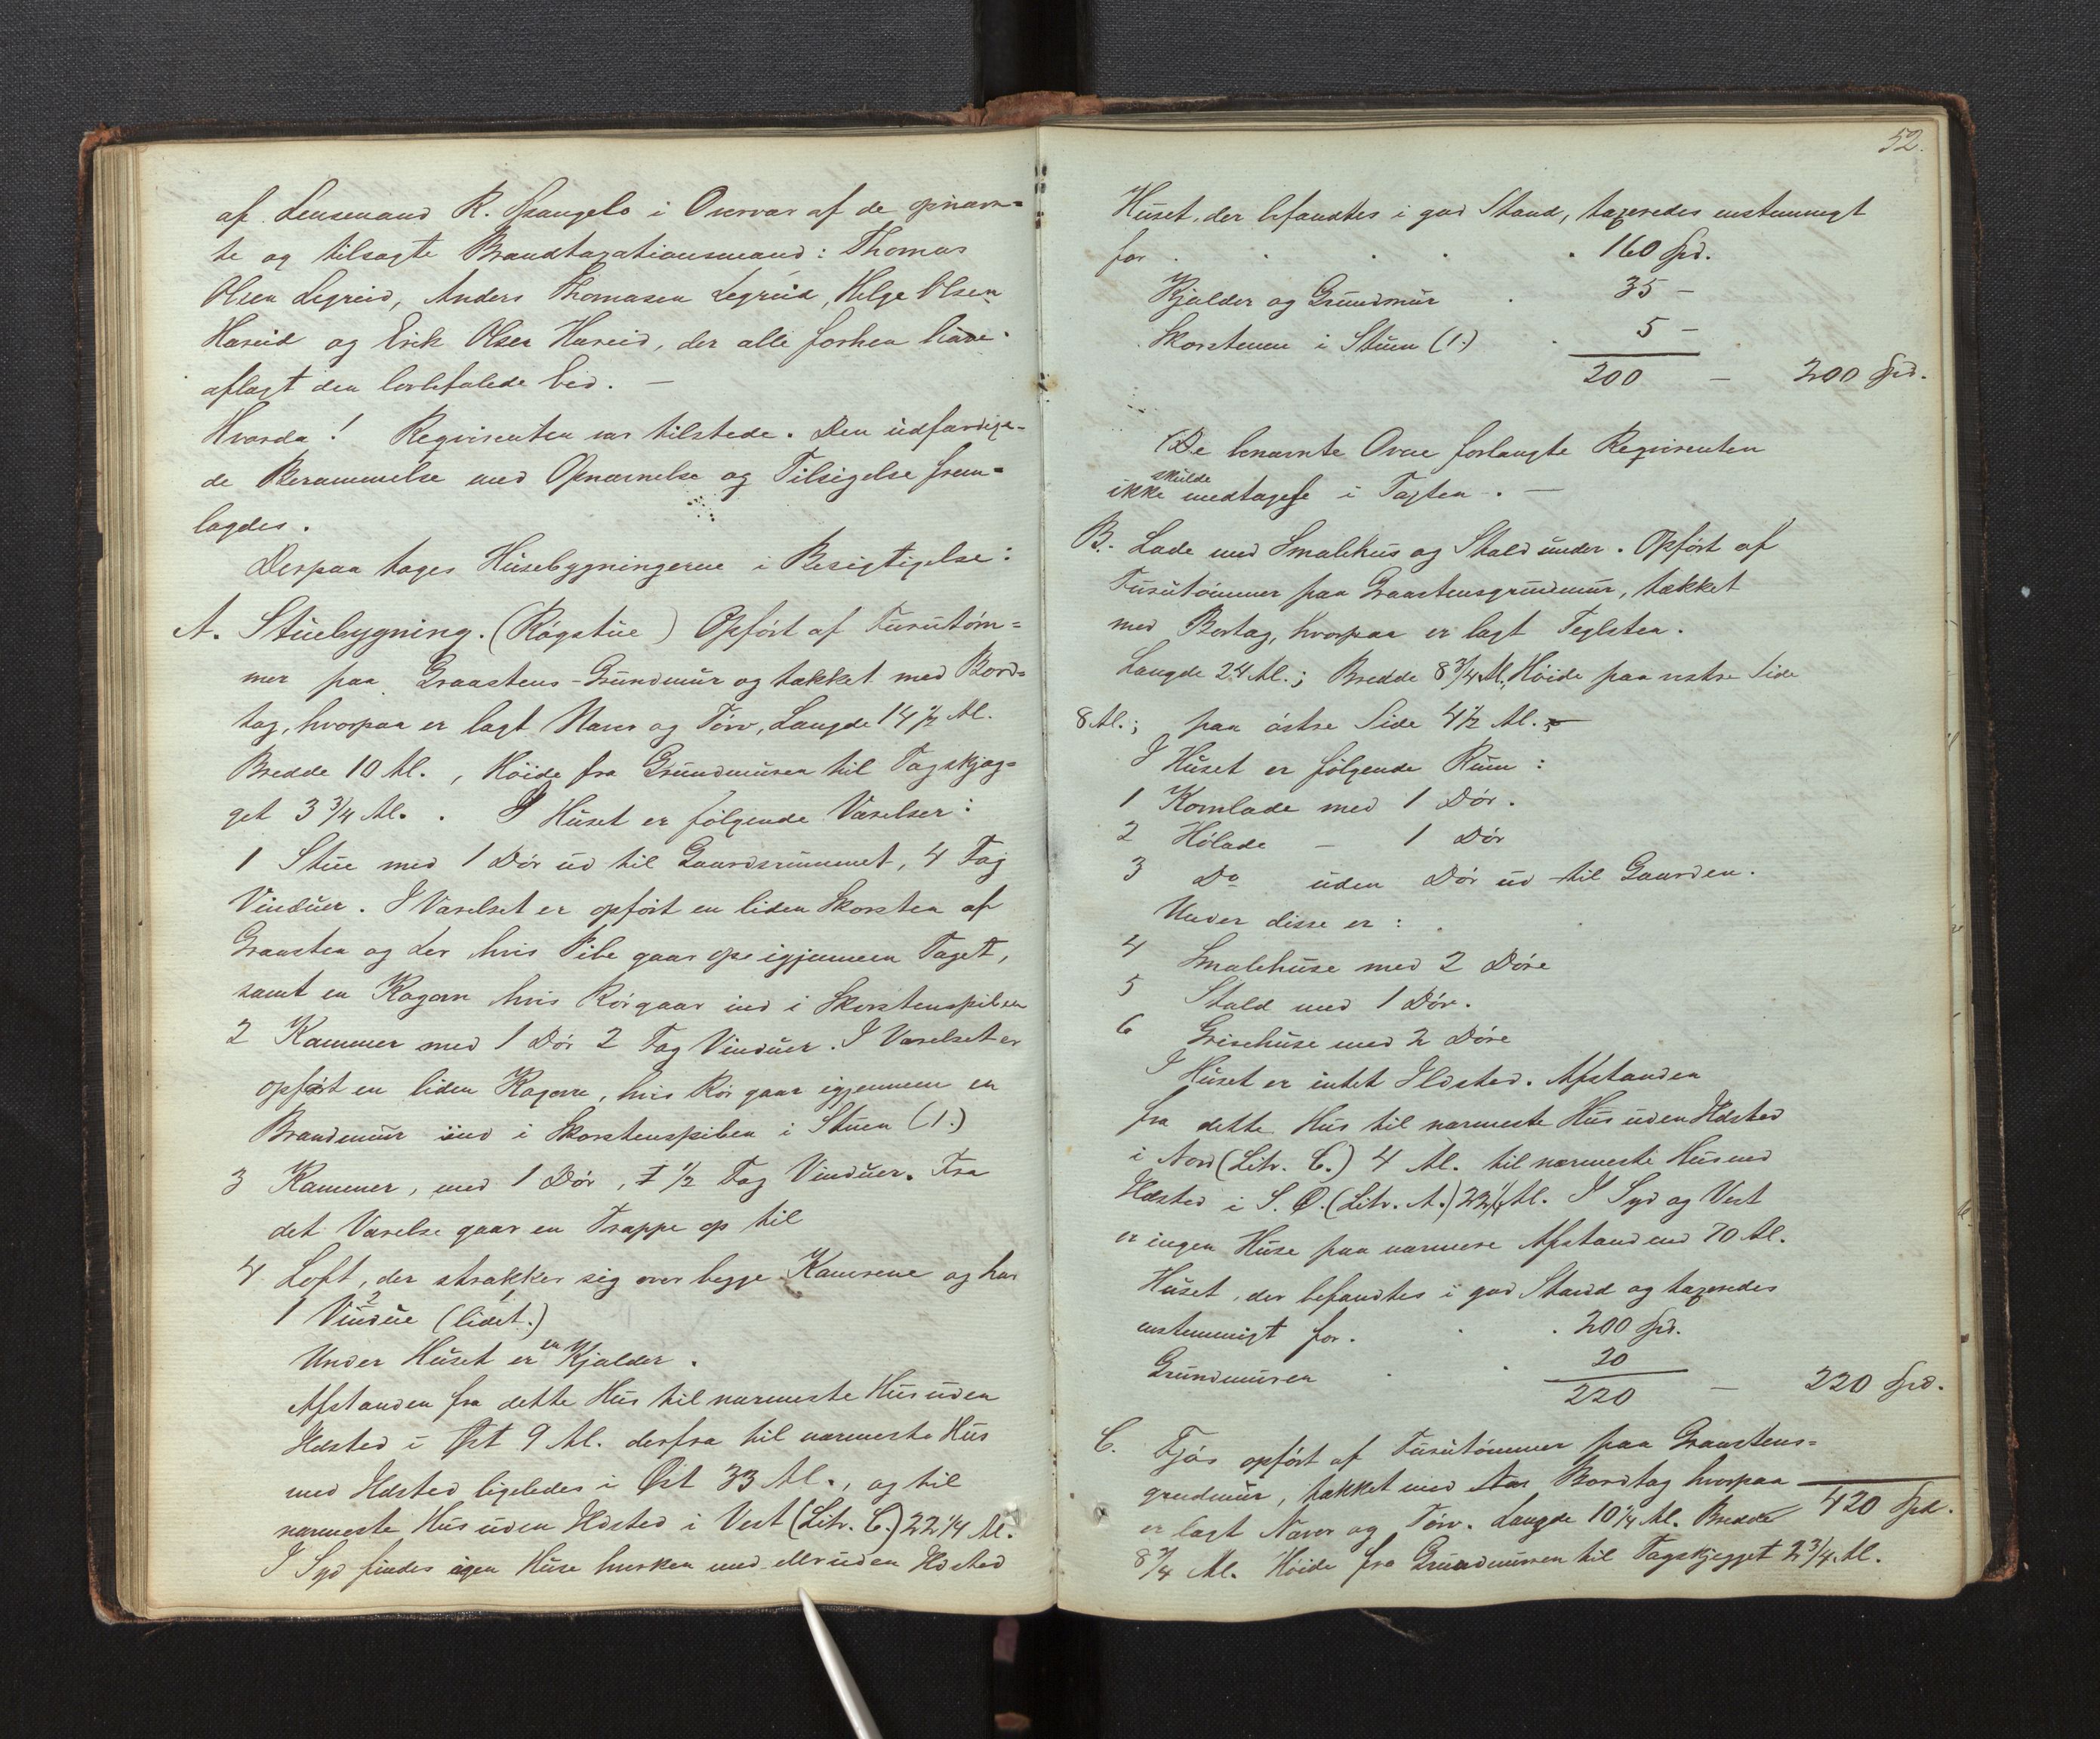 af Lensmand R. Spangelo i Overvær af de opnævn=
te og tilsagte Brandtaxationsmænd: Thomas
Olsen Legreid, Anders Thomasen Legreid, Helge Olsen
Hareid og Erik Olsen Hareid, der alle forhen have
aflagt den lovbefalede Eed. —
Hvorda! Reqvirenten var tilstede. Den udfærdige-
de Berammelse med Opnævnelse og Tilsigelse frem=
lagdes.
Derpaa toges Husebygningerne i Besigtigelse:
A. Stuebygning. (Røgstue) Opført af Furutøm=
mer paa Graastens-Grundmur og tækket med Bord=
tag, hvorpaa er lagt Næver og Törv, Længde 14 1/2 Al.
Bredde 10 Al., Höide fra Grundmuren til Tagskjæg=
get 3 3/4 Al. . I Huset er følgende Værelser:
1 Stue med 1 Dör ud til Gaardsrummet, 4 Fag
Vinduer. I Værelset er opført en liden Skorsten af
Graasten og Ler hvis Pibe gaar op igjennem Taget,
samt en Kagovn hvis Rör gaar ind i Skorstenspiben
2 Kammer med 1 Dör 2 Fag Vinduer. I Værelset er
opført en liden Kagovn, hvis Rör gaar igjennem en
Brandmur ind i Skorstenspiben i Stuen (1.)
3 Kammer, med 1 Dör, 1 1/2 Fag Vinduer. Fra
det Værelse gaar en Trappe op til
4 Loft, der strækker sig over begge Kamrene og har
1 Vindue (lidet.)
Under Huset er en Kjælder.
Afstanden fra dette Hus til nærmeste Hus uden
Ildsted i Øst 9 Al. derfra til nærmeste Hus
med Ildsted ligeledes i Øst 33 Al., og til
nærmeste Hus uden Ildsted i Vest (Litr. C.) 22 1/4 Al.
I Syd findes ingen Huse hverken med eller uden Ildsted
52.
Huset, der befandtes i god Stand, taxeredes enstemmigt
for . . . . 160 Spd.
Kjælder og Grundmur . 35 —
Skorstenen i Stuen (1.) . 5 —
200 — 200 Spd.
De benævnte Ovne forlangte Reqvirenten
skulde
ikke medtages i Taxten. —
B. Lade med Smalehus og Stald under. Opfört af
Furutömmer paa Graastensgrundmur, tækket
med Bortag, hvorpaa er lagt Teglsten.
Længde 24 Al.; Bredde 8 3/4 Al., Höide paa vestre Side
8 Al.; paa östre Side 4 1/2 Al.
I Huset er fölgende Rum:
1 Kornlade med 1 Dör.
2 Hölade — 1 Dör
3 Do uden Dör ud til Gaarden.
Under disse er:
4 Smalehuse med 2 Döre
5 Stald med 1 Döre.
6 Grisehuse med 2 Döre
I Huset er intet Ildsted. Afstanden
fra dette Hus til nærmeste Hus uden Ildsted
i Nord (Litr. C.) 4 Al. til nærmeste Hus med
Ildsted i S. Ø. (Litr. A.) 22 1/4 Al. I Syd og Vest
er ingen Huse paa nærmere Afstand end 70 Al.
Huset, der befandtes i god Stand og taxeredes
enstemmigt for . . . 200 Spd.
Grundmuren . . 20
220 — 220 Spd.
C. Fjös opfört af Furutömmer paa Graastens=
grudmur, tækket med Bordtag hvorpaa
er lagt Næver og Törv. Længde 10 1/4 Al. Bredde 420 Spd.
8 3/4 Al. Höide fra Grundmuren til Tagskjegget 2 3/4 Al.